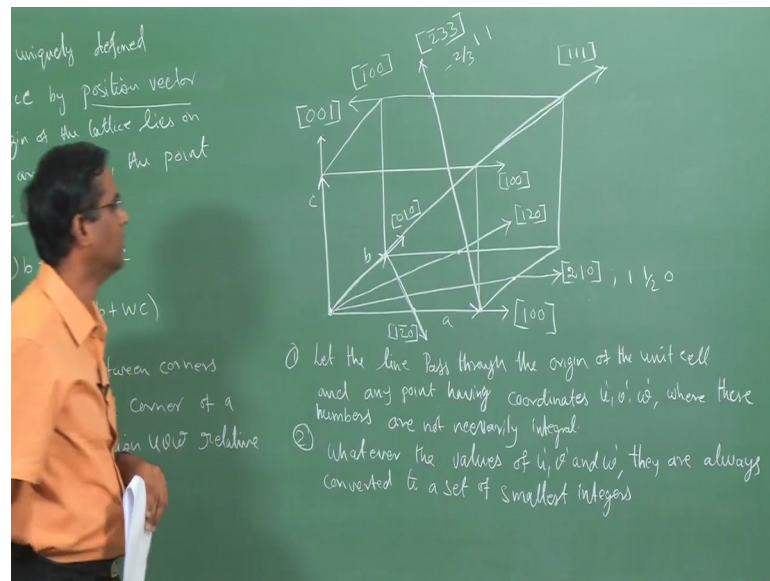 uniquely defined
ce by position vector
gin of the lattice lies on
an the point
)b+
b+wc)
tween corners
corner of a
uvw relative
[233]
-2/3 1 1
[111]
[100]
[001]
[100]
c
[010]
[120]
b
[210] ; 1 1/2 0
a
[100]
[120]
① Let the line Pass through the origin of the unit cell
and any point having coordinates u' v' w', where these
numbers are not necessarily integral.
② Whatever the values of u', v' and w', they are always
converted to a set of smallest integers